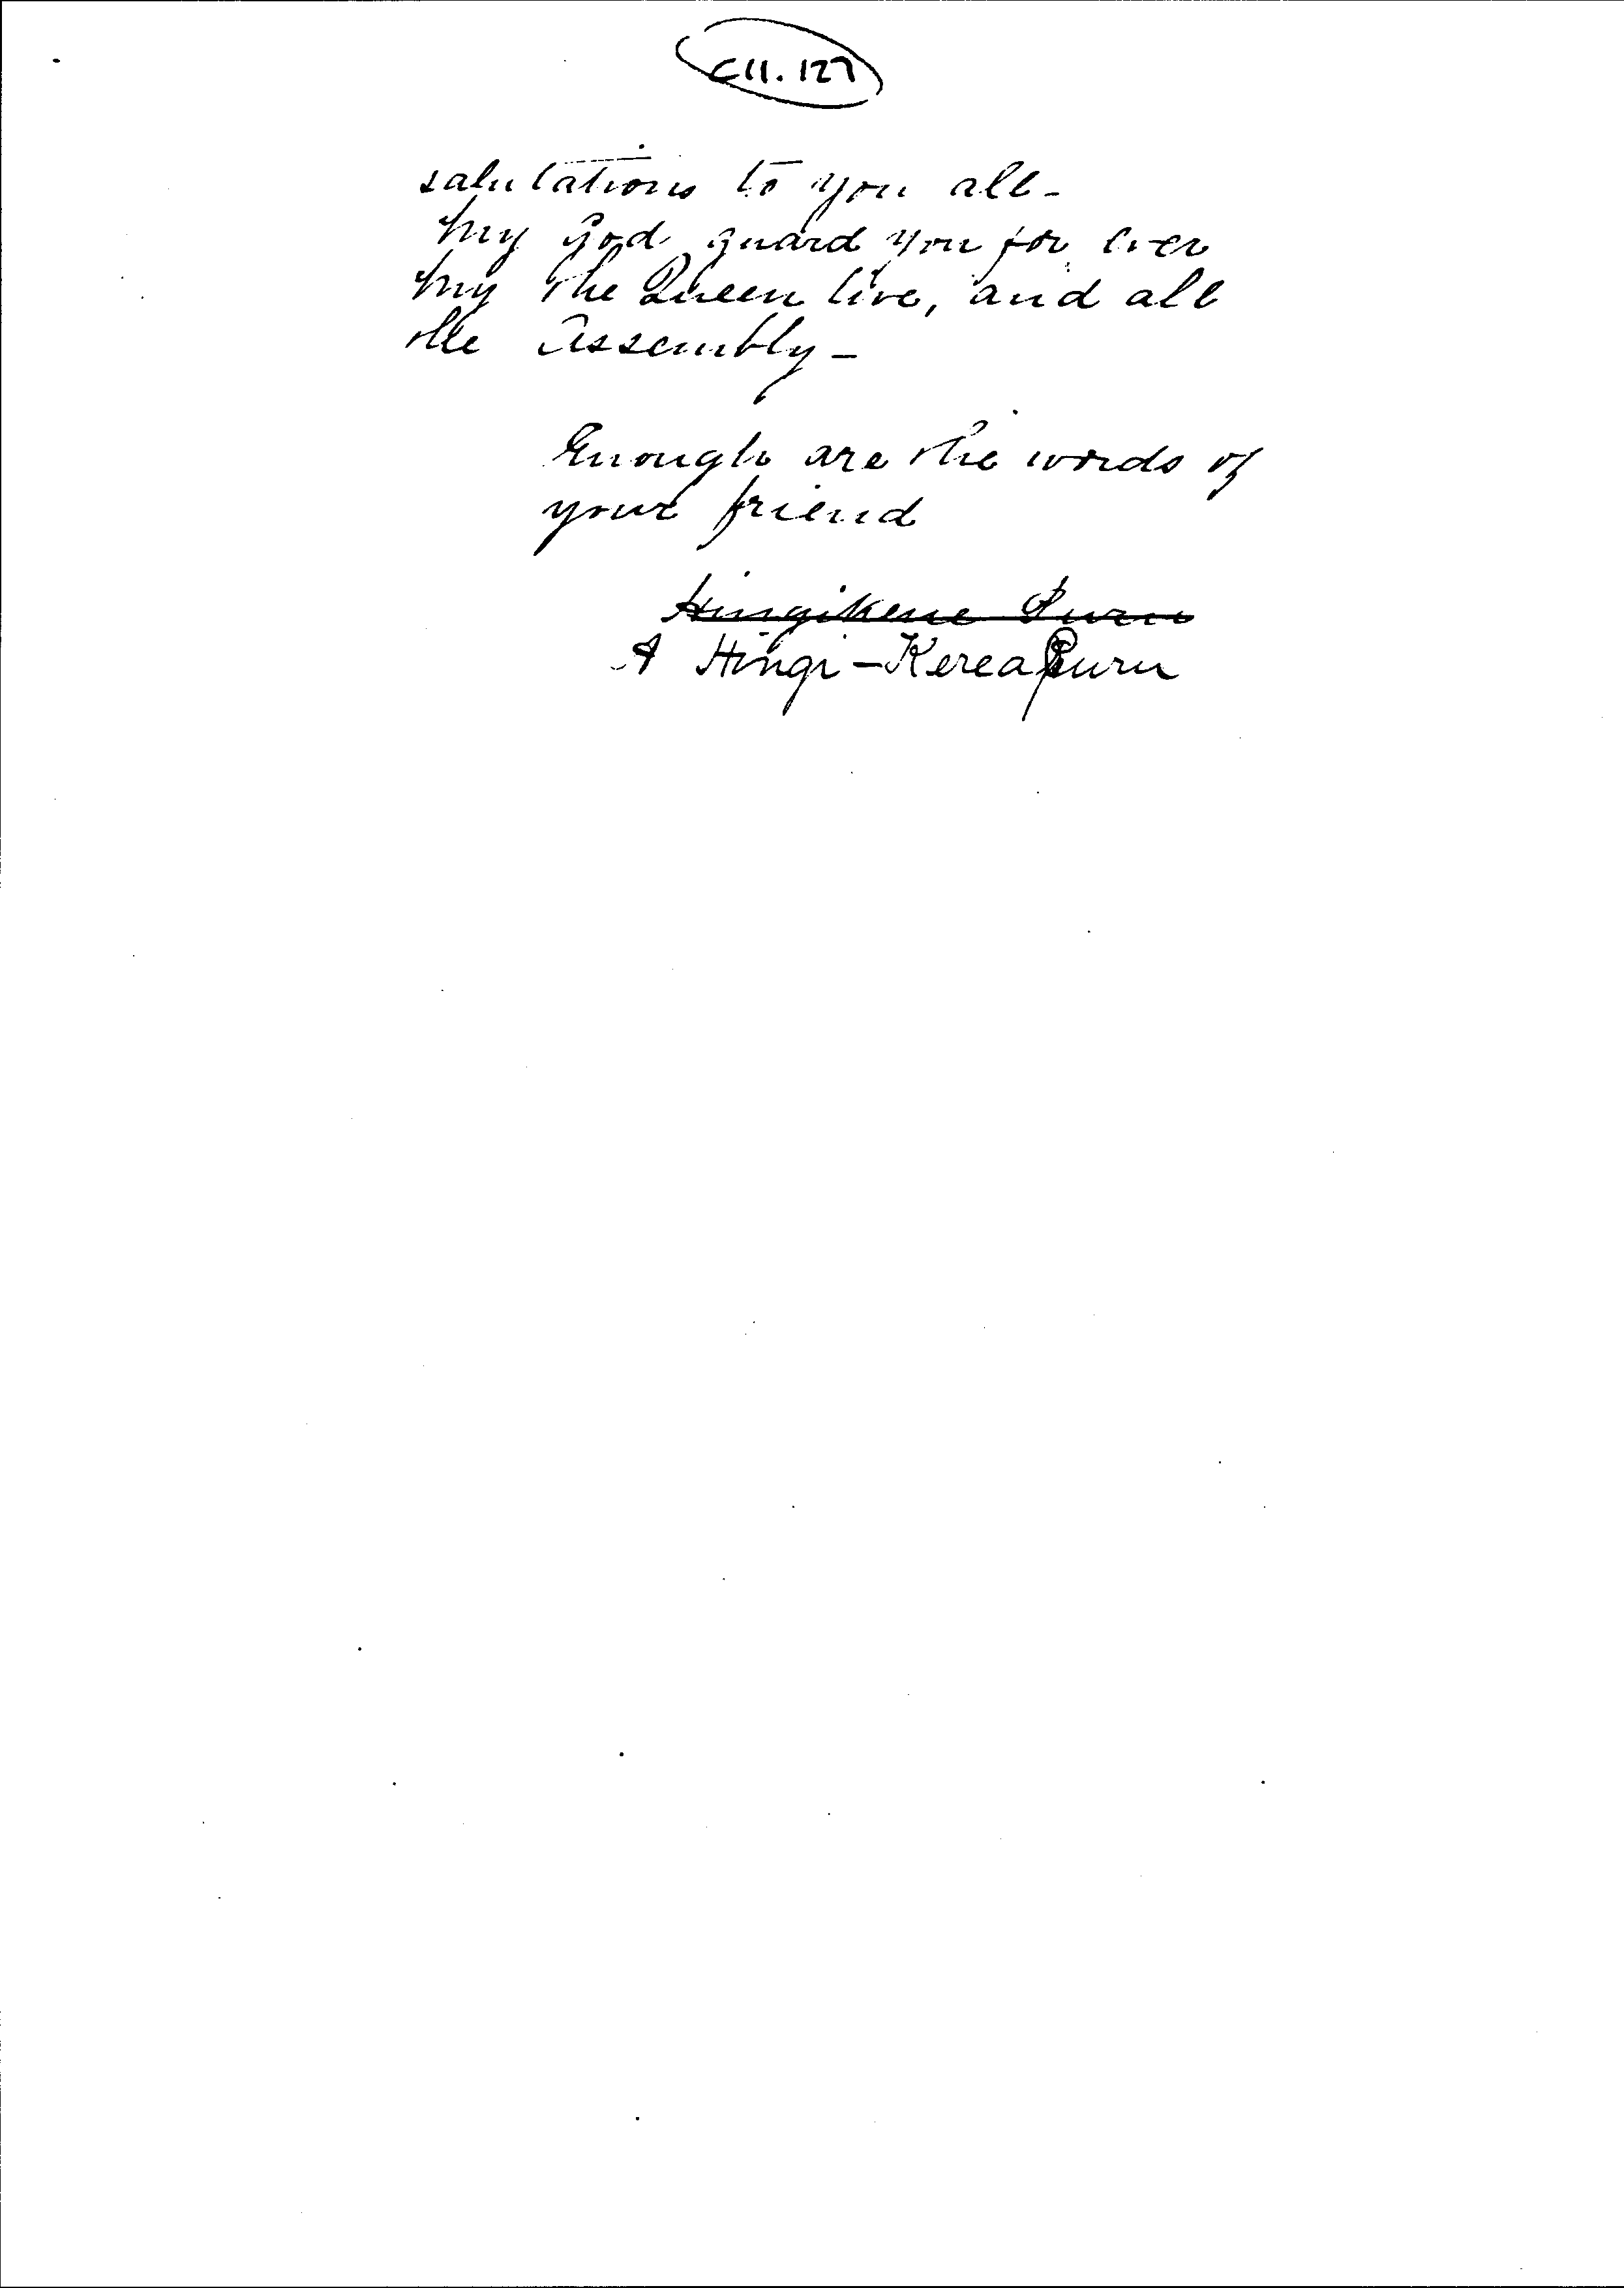 C11.127
salutations to you all -
My God guard you for ever
My the Queen live, and all
the Assembly -
Enough are the words of
your friend
Hingikene Puru
A Hingi - Kerea Puru